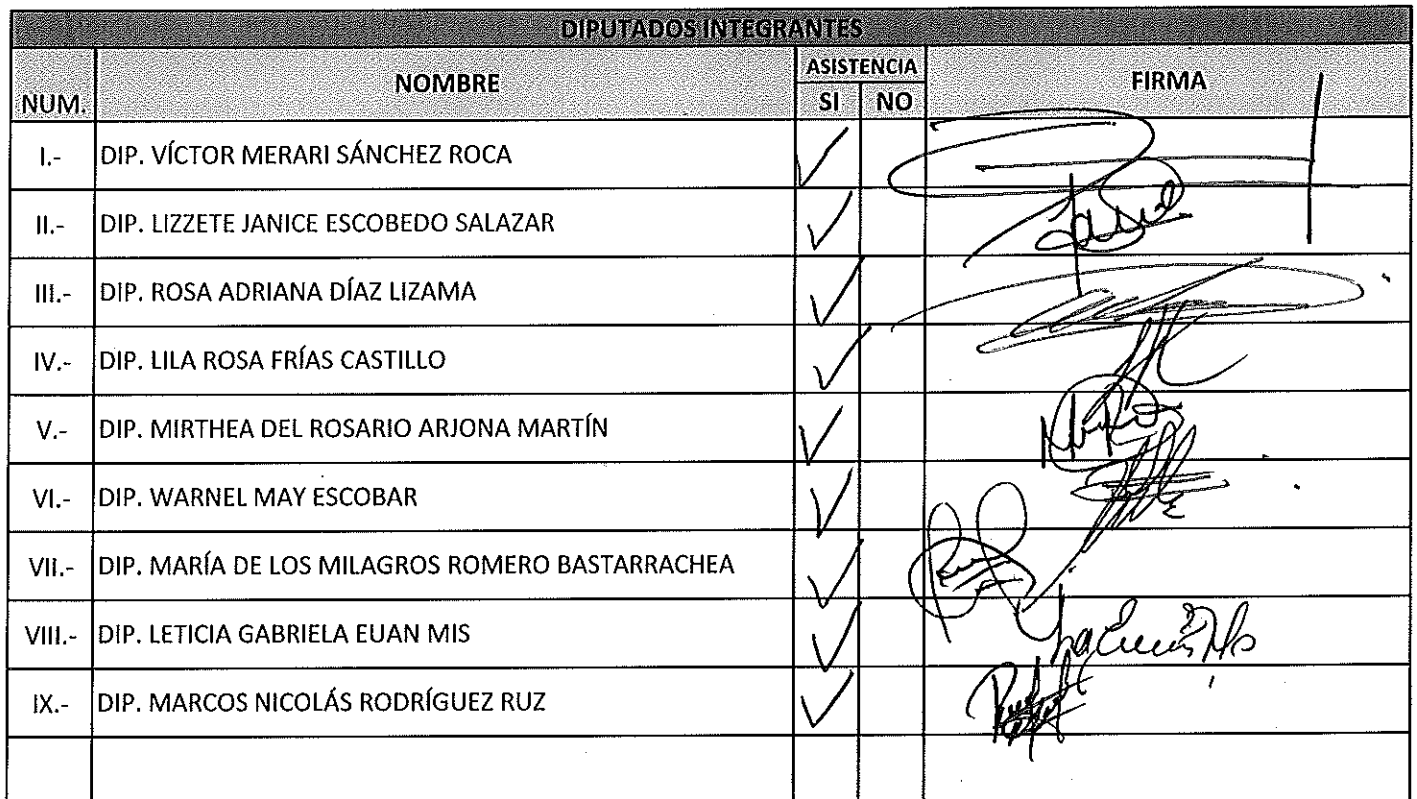 DIPUTADOS INTEGRANTES
NUM. NOMBRE ASISTENCIA FIRMA
SI NO
I.- DIP. VÍCTOR MERARI SÁNCHEZ ROCA
II.- DIP. LIZZETE JANICE ESCOBEDO SALAZAR
III.- DIP. ROSA ADRIANA DÍAZ LIZAMA
IV.- DIP. LILA ROSA FRÍAS CASTILLO
V.- DIP. MIRTHEA DEL ROSARIO ARJONA MARTÍN
VI.- DIP. WARNEL MAY ESCOBAR
VII.- DIP. MARÍA DE LOS MILAGROS ROMERO BASTARRACHEA
VIII.- DIP. LETICIA GABRIELA EUAN MIS
IX.- DIP. MARCOS NICOLÁS RODRÍGUEZ RUZ